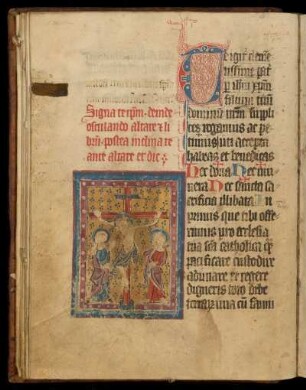 Signa ter pm. deinde
osculando altare et li
brū. postea inclina te
ante altare et dic
Te igit clemē
tissime pat
p ihm xpm
filium tuū
dominū nrm suppli
ces rogamus ac pe
timus uti accepta
habeas et benedicas
Hec dona Hec mu
nera Hec sancta sa
crificia illibata In
primis que tibi offe
rimus pro ecclesia
tua sca catholica
pacificare custodire
adunare et regere
digneris toto orbe
terrarum una cū famu